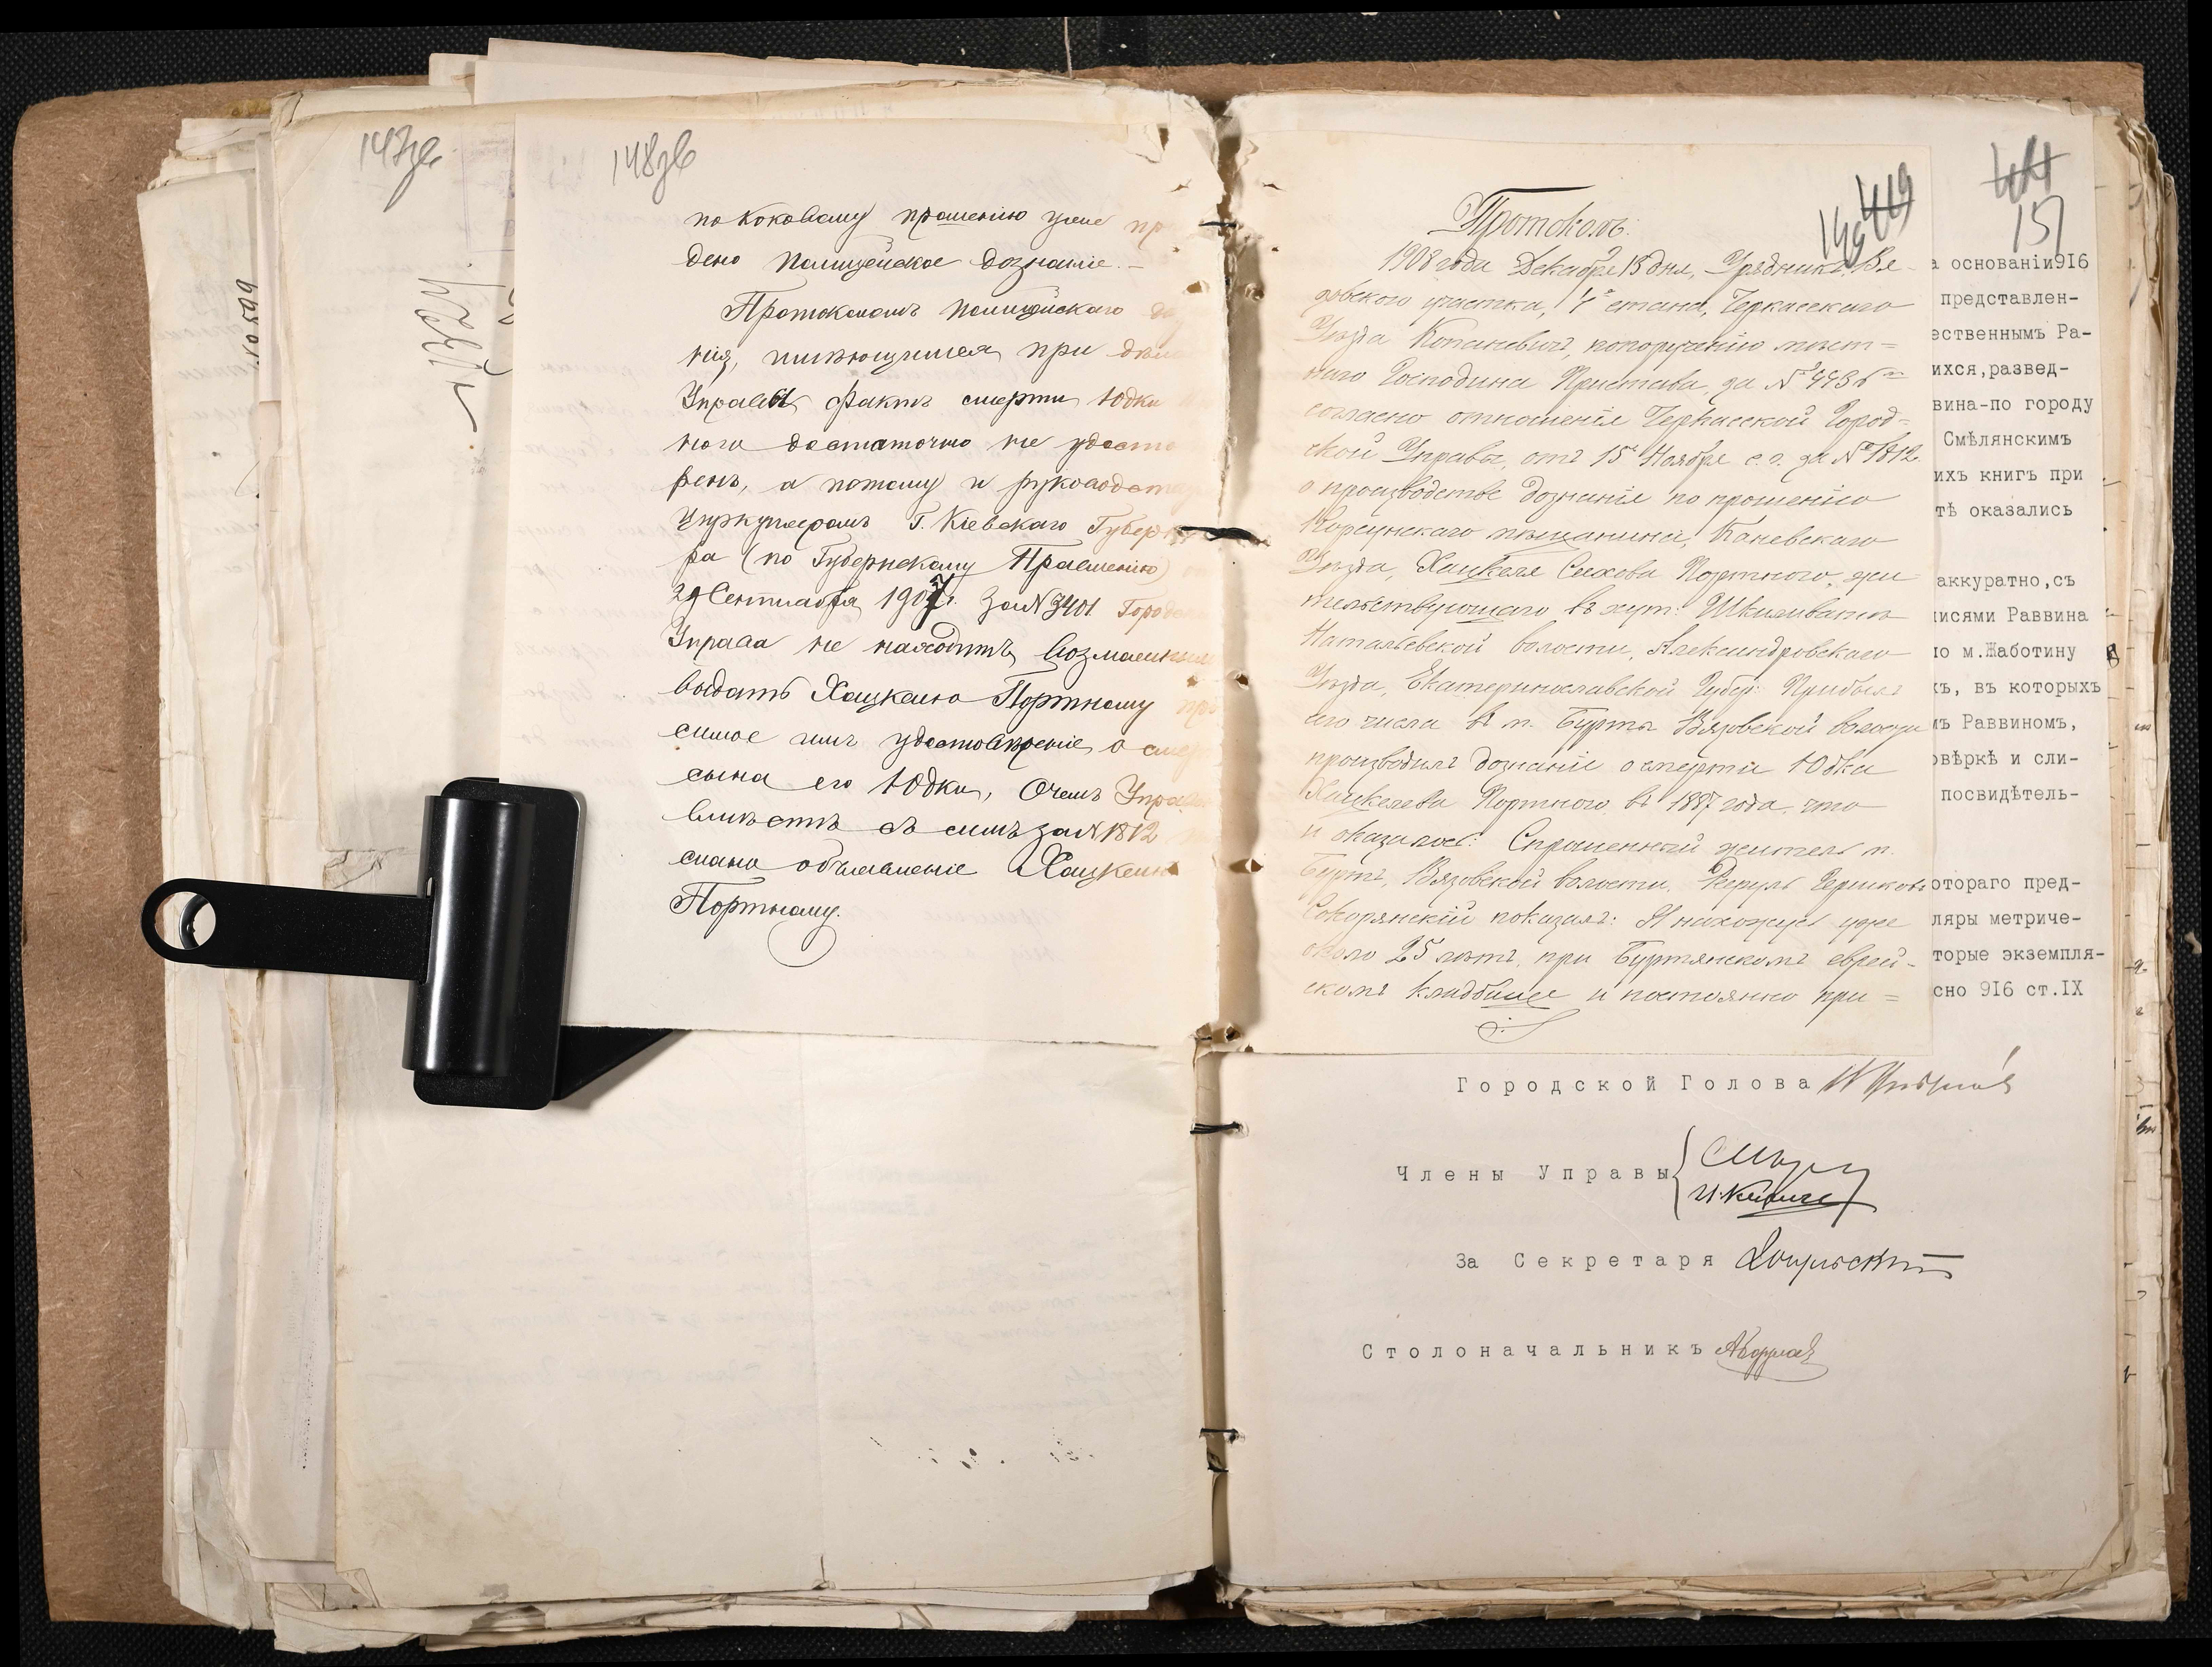 147зв
148зв
по каковому прошенію уже пр
дено полицейское дознаніе.-
Протоколомъ полицейскаго до
нія, имѣющимся при дѣлѣ
Управы фактъ смерти Юдки
ного достаточно не удосто
ренъ, а потому и руководств
циркуляромъ Г. Кіевскаго Губерн
ра (по Губернскому Правленію)
29 Сентября 1907 г. за № 3401 Городс
Управа не находитъ возможным
выдать Хацкелю Портному про
симое имъ удостовѣреніе о смер
сына его Юдки, О чемъ Управ
вмѣстѣ съ симъ за № 1812
слано объявленіе Хацкелю
Портному.
149
Протоколъ.
1908 года Декабря 15 дня, Урядникъ Вя-
зовскаго участка, 4го стана, Черкасскаго
Уѣзда Копаневичъ, по порученію мѣст=
наго Господина Пристава, за № 4436
согласно отношенія Черкасской Город=
ской Управы, отъ 15 Ноября с. г. за № 1812
о производствѣ дознанія по прошенію
Корсунскаго мѣщанина, Каневскаго
Уѣзда, Хацкеля Портного, жи
тельствующаго въ хут.
волости, Александровскаго
Уѣзда, Екатеринославской Губер. Прибылъ
сего числа въ м. Бурты Вязовской волости
производилъ дознаніе о смерти Юдки
Хацкелева Портного въ 1887 года, что
и оказалось: Спрошенный житель м.
Бурты, Вязовской волости,
показалъ: Я нахожусь уже
около 25 лѣтъ, при Буртянскомъ еврей-
скомъ кладбище и постоянно при=
151
а основаніи 916
представлен-
ественнымъ Ра-
ихся, развед-
вина-по городу
Смѣлянскимъ
ихъ книгъ при
тѣ оказались
аккуратно, съ
исями Раввина
по м. Жаботину
хъ, въ которыхъ
мъ Раввиномъ,
овѣркѣ и сли-
посвидѣтель-
отораго пред-
ляры метриче-
торые экземпля-
сно 916 ст. IX
Городской Голова
Члены Управы
За Секретаря
Столоначальникъ